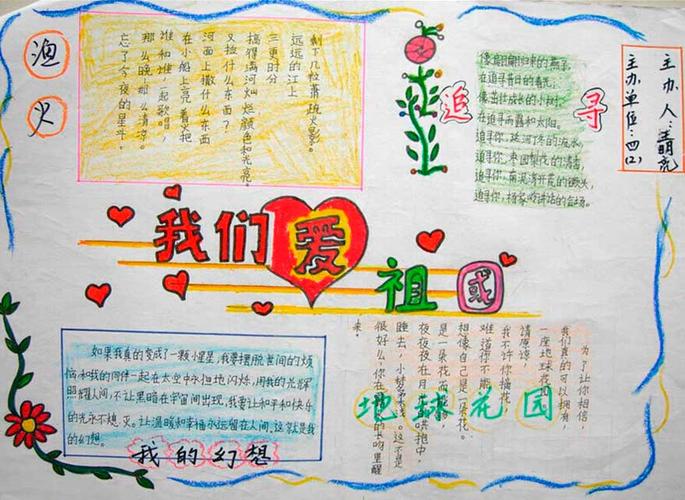 渔火
剩下几粒萧疏火影。
远远的江上
三更时分
搞得满河灿烂颜色和光亮。
又捡什么东西?
河面上撒什么东西
在小船上亮着火把
谁和谁,一起歌唱,
那么晚,那么清凉。
忘了今夜的星斗。
追寻
像翩翩归来的燕子,
在追寻昔日的春光;
像茁壮成长的小树,
在追寻雨露和太阳。
追寻你,延河叮咚的流水,
追寻你,枣园梨花的清香,
追寻你,南泥湾开荒的镢头,
追寻你,杨家岭讲话的会场。
主办人:
主办单位:四(2)
我们爱
祖国
如果我真的变成了一颗小星星,我要摆脱世间的烦
恼和我的同伴一起在太空中永恒地闪烁,用我的光辉
照耀人间,不让黑暗在宇宙间出现,我要让和平和快乐
的光永不熄灭。让温暖和幸福永远留在人间,这就是我
的幻想。
我的幻想
为了让你相信,
我们真的可以拥有
一座地球花
请原谅,
我不许你摘花
难道你不能
想像自己是一朵花。
是一朵花而
夜夜夜在月
睡去,小梦 这不是
很好么,你在 的长吻里醒
来。
地球花园